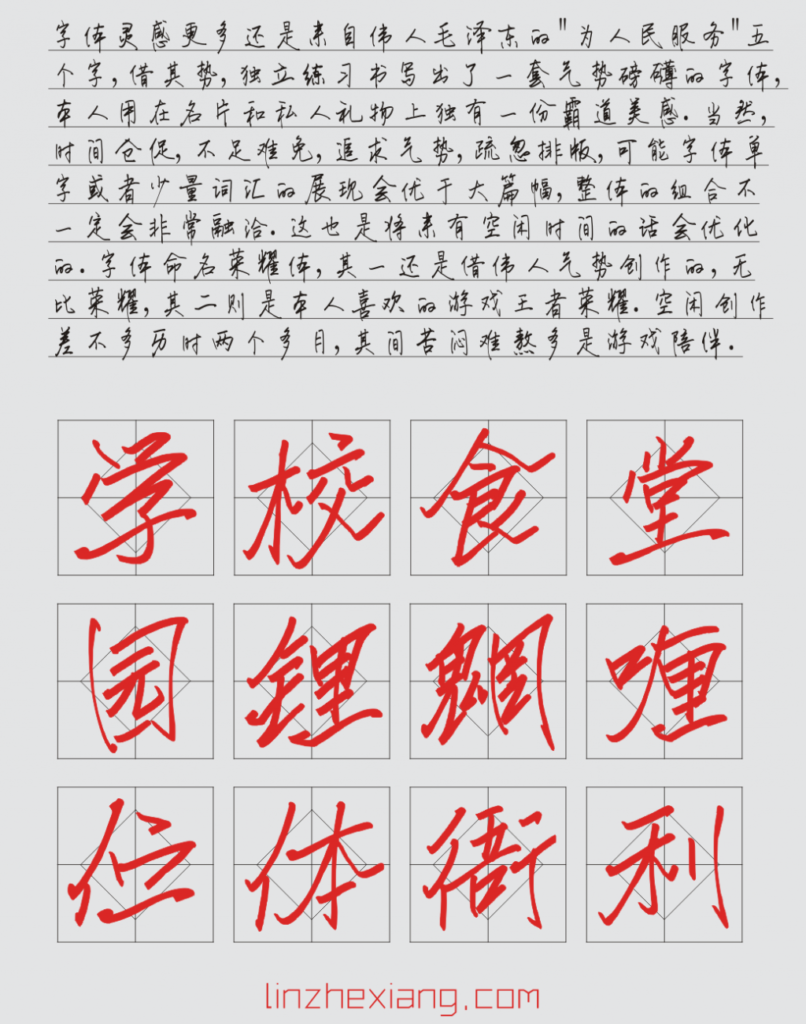 字体灵感更多还是来自伟人毛泽东的"为人民服务"五
个字,借其势,独立练习书写出了一套气势磅礴的字体,
本人用在名片和私人礼物上独有一份霸道美感.当然,
时间仓促,不足难免,追求气势,疏忽排版,可能字体单
字或者少量词汇的展现会优于大篇幅,整体的组合不
一定会非常融洽.这也是将来有空闲时间的话会优化
的.字体命名荣耀体,其一还是借伟人气势创作的,无
比荣耀,其二则是本人喜欢的游戏王者荣耀.空闲创作
差不多历时两个多月,其间苦闷难熬多是游戏陪伴.
学校食堂
园锂
位体衙利
linzhexiang.com